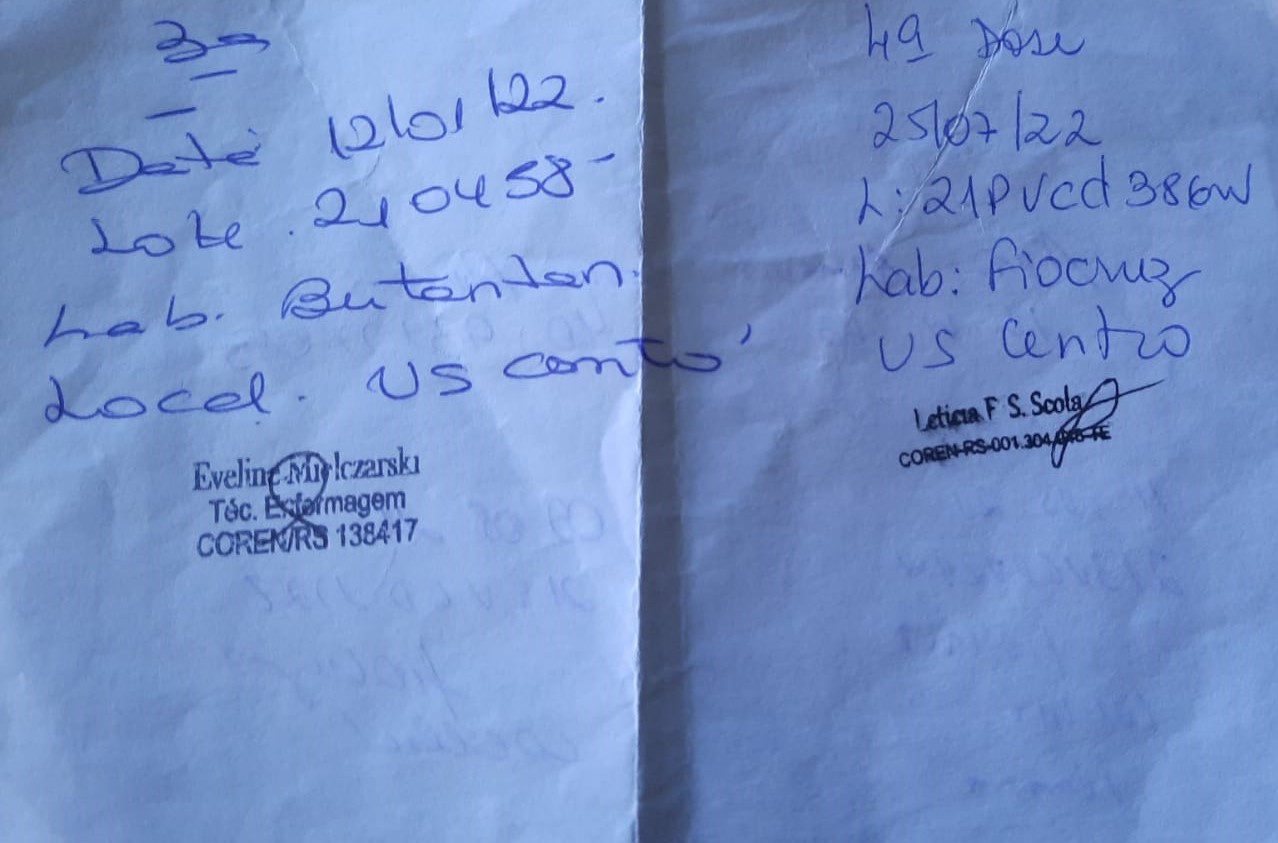 3ª
Data 12/01/22.
Lote . 210458
Lab. Butantan.
Local. US centro
Eveline Mielczarski
Téc. Enfermagem
COREN/RS 138417
4ª Dose
25/07/22
L: 21PVCd386W
Lab: fiocruz
US Centro
Leticia F S. Scola